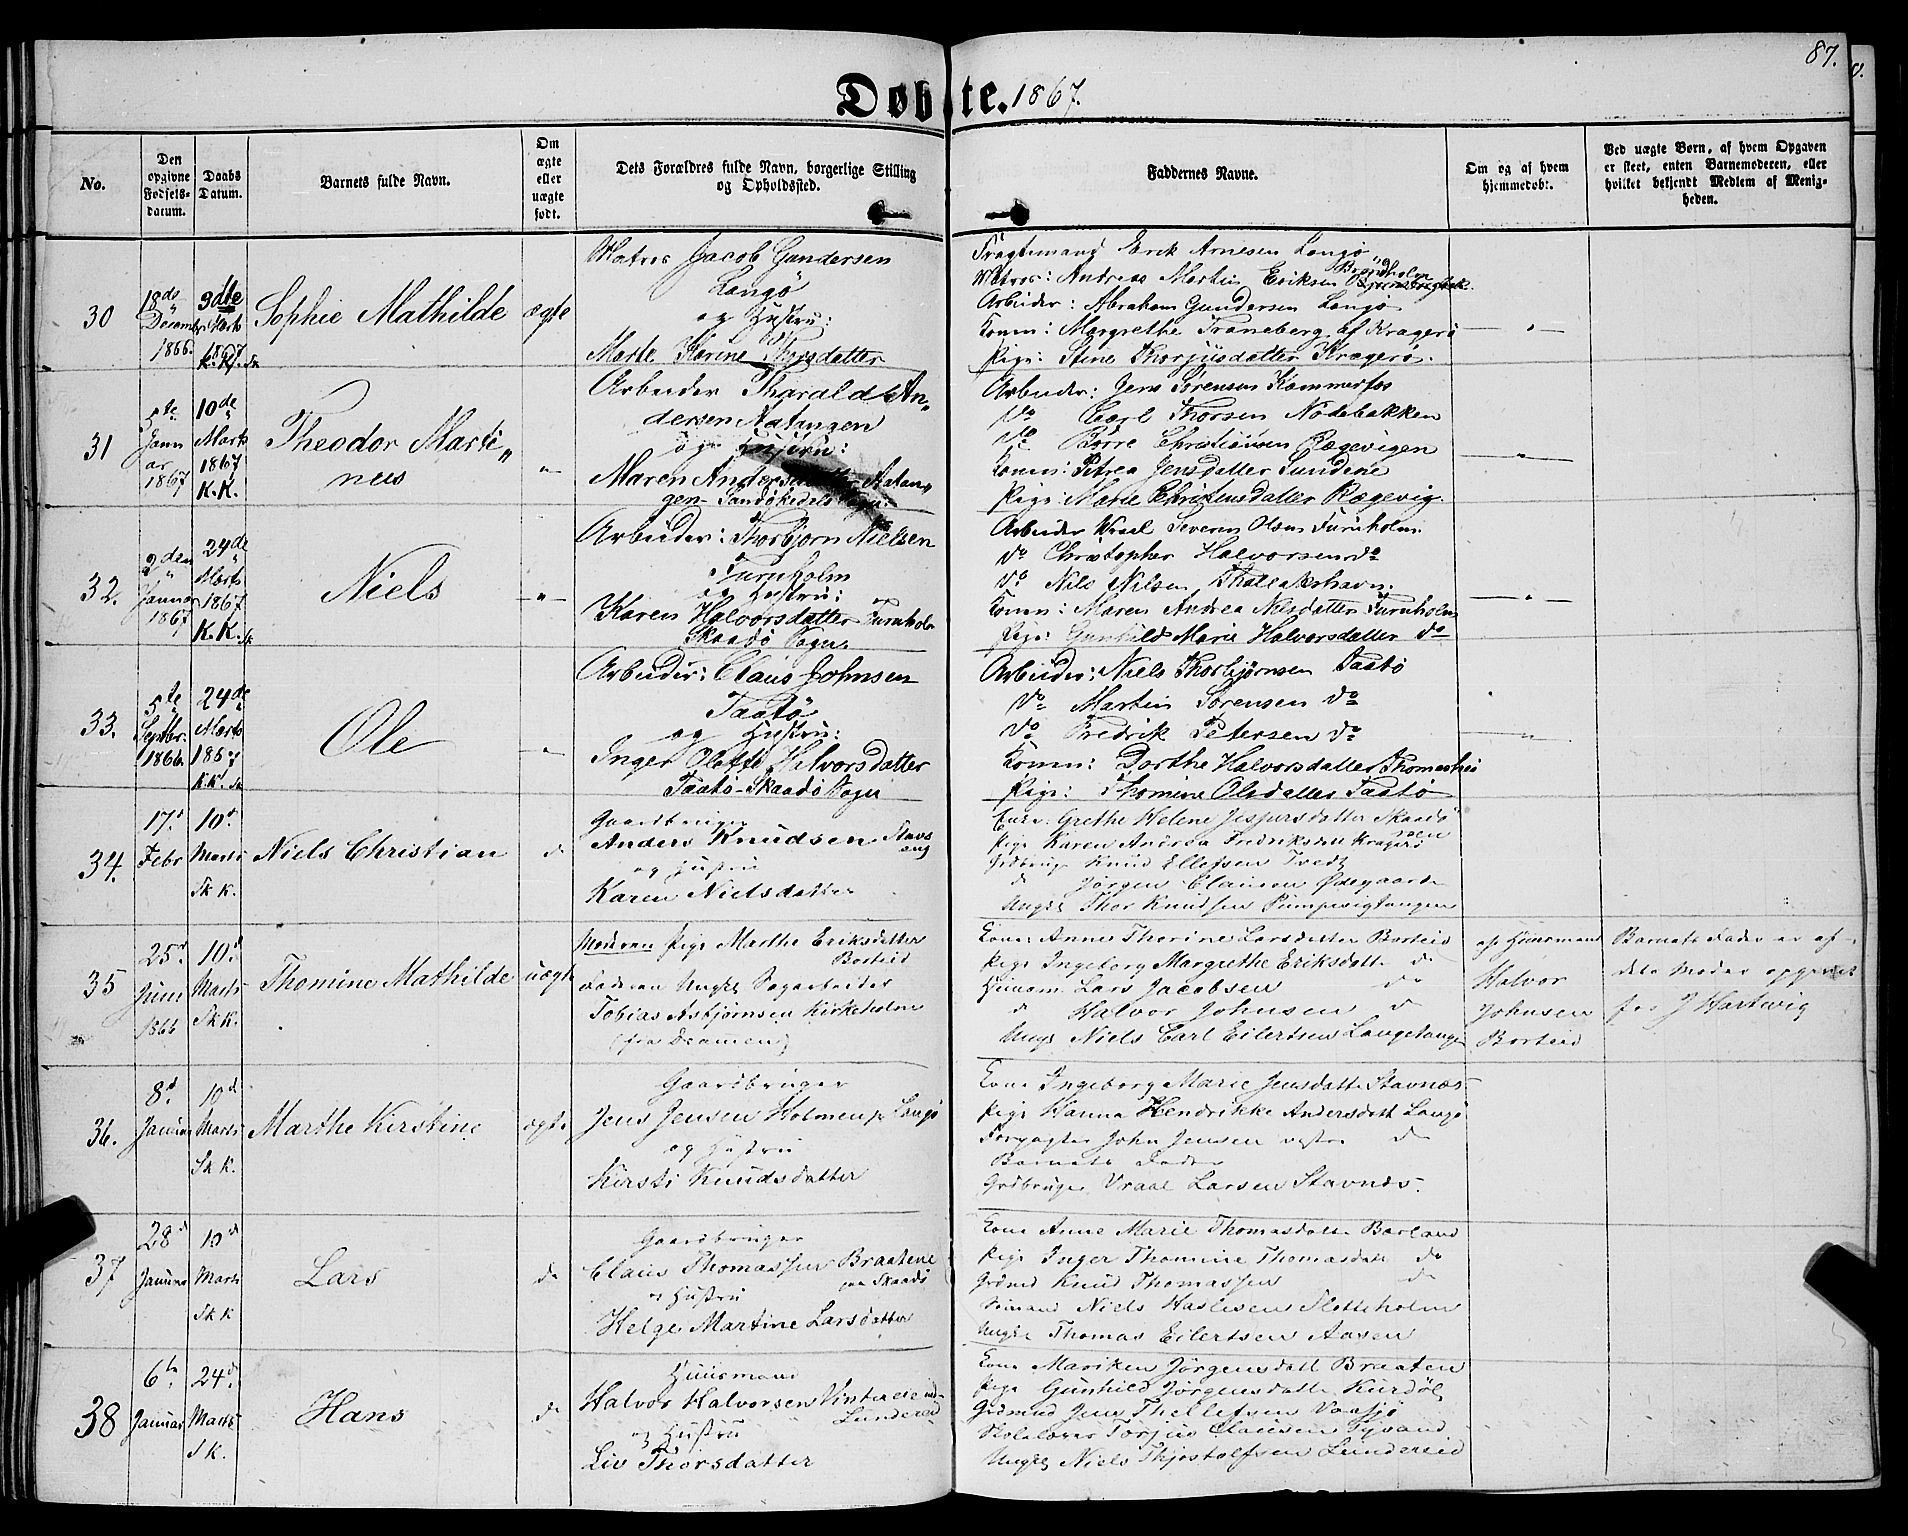 87.
Døbte. 1867.
No.
Den opgivne Fødsels-datum.
Daabs Datum.
Barnets fulde Navn.
Om ægte eller uægte født.
Dets Forældres fulde Navn, borgerlige Stilling og Opholdssted.
Faddernes Navne.
Om og af hvem hjemmedøbt.
Ved uægte Børn, af hvem Opgaven er skeet, enten Barnemoderen, eller hvilket bekjendt Medlem af Menigheden.
30
18de December 1866.
3dte Marts 1867 K.K. Sk
Sophie Mathilde
ægte
Matros Jacob Gundersen
Langö
og Hustru:
Marte Karine Thorsdatter
Fragtemand Erik Arnesen Langö
Matros: Andreas Martin Eriksen
Arbeider: Abraham Gundersen Langö
Konen: Margrethe Traneberg af Kragerö
Pige: Stine Thorjusdatter Kragerö.
31
5te Januar 1867
10de Marts 1867 K.K.
Theodor Marti„
nus
"
Arbeider Tharald An„
dersen Aatangen
og Hustru:
Maren Andersdatter Aatan„
gen - Sandøkedels Sogn
Arbeider: Jens Sörensen Kammerfos
do Carl Thorsen Nodebakken
do Börre Christiansen Rægevigen
Konen: Petrea Jensdatter Lundene
Pige: Marie Christensdatter Rægevig
32.
2den Januar 1867
24de Marts 1867 K.K. Sk
Niels
"
Arbeider: Thorbjörn Nielsen
Furuholm
og Hustru:
Karen Halvorsdatter Furuholm
Skaadö Sogn.
Arbeider Wraal Severin Olsen Furuholm.
do Christopher Halvorsen do
do Nils Nilsen Thallakshavn.
Konen: Maren Andrea Nilsdatter Furuholm
Pige: Gunhild Marie Halvorsdatter do
33.
5te Septbr. 1866
24de Marts 1867 K.K. Sk
Ole
"
Arbeider: Claus Johnsen
Taatö
og Hustru:
Inger Olette Halvorsdatter
Taatö - Skaadö Sogn
Arbeider: Niels Thorbjørnsen Taatö
do Martin Sörensen do
do Fredrik Petersen do
Konen: Dorthe Halvorsdatter
Pige: Thomine Olsdatter Taatö
34.
17d Febr
10d Marts Sk K.
Niels Christian
d
Gaardbruger
Anders Knudsen Stavs
eng
og Hustru
Karen Nielsdatter
Grethe Helene Jespersdatter Skaadö
Pige Karen Andrea Fredriksdtt Kragerö
Grdbruger Knud Ellefsen Tvedt
d Jørgen Clausen Ødegaarden
Ungkl Thor Knudsen Pumpevigtangen
35
25d Juni 1866
10d Marts Sk K.
Thomine Mathilde
uægte
Moderen Pige Marthe Eriksdatter
Borteid
Faderen Ungkl Sagarbeider
Tobias Asbjørnsen Kirkeholm
(fra Dramen)
Kone Anne Thorine Larsdatter Borteid
Pige Ingeborg Margrethe Eriksdatt do
Huusm Lars Jacobsen do
d Halvor Johnsen d
Ungk Niels Carl Eilertsen Langetangen
af Huusmand
Halvor
Johnsen
Borteid
Barnets Fader er af
dets Moder opgivet
for J Hartwig
36.
8d Januar
10d Marts Sk K.
Marthe Kirstine
ægte
Gaardbruger
Jens Jensen Holmen p Langö
og Hustru
Kirsti Knudsdatter
Kone Ingeborg Marie Jensdatt Stavnæs
Pige Hanna Hendrikke Andersdatt Langö
Forpagter John Jensen vestre do
Barnets Fader
Grdbruger Vraal Larsen Stavnæs.
37
28d Januar
10d Marts Sk K
Lars
do
Gaardbruger
Claus Thomassen Braatene
paa Skaadö
og Hustru
Helge Martine Larsdatter
Kone Anne Marie Thomasdatt Barland
Pige Inger Thomine Thomasdatt do
Grdmd Knud Thomassen do
Sömand Niels Haslesen Slotteholm
Ungkl Thomas Eilertsen Aasen
38
6te Januar
24d Marts Sk.
Hans
do
Huusmand
Halvor Halvorsen
Lundereid
og Hustru
Liv Thorsdatter
Kone Mariken Jörgensdatt Braaten
Pige Gunhild Jörgensdatt Kurdöl
Grdmd Jens Thellefsen Vaasjö
Skolelærer Torjus Clausen Tyvand
Ungkl Niels Thjostolfsen Lundereid